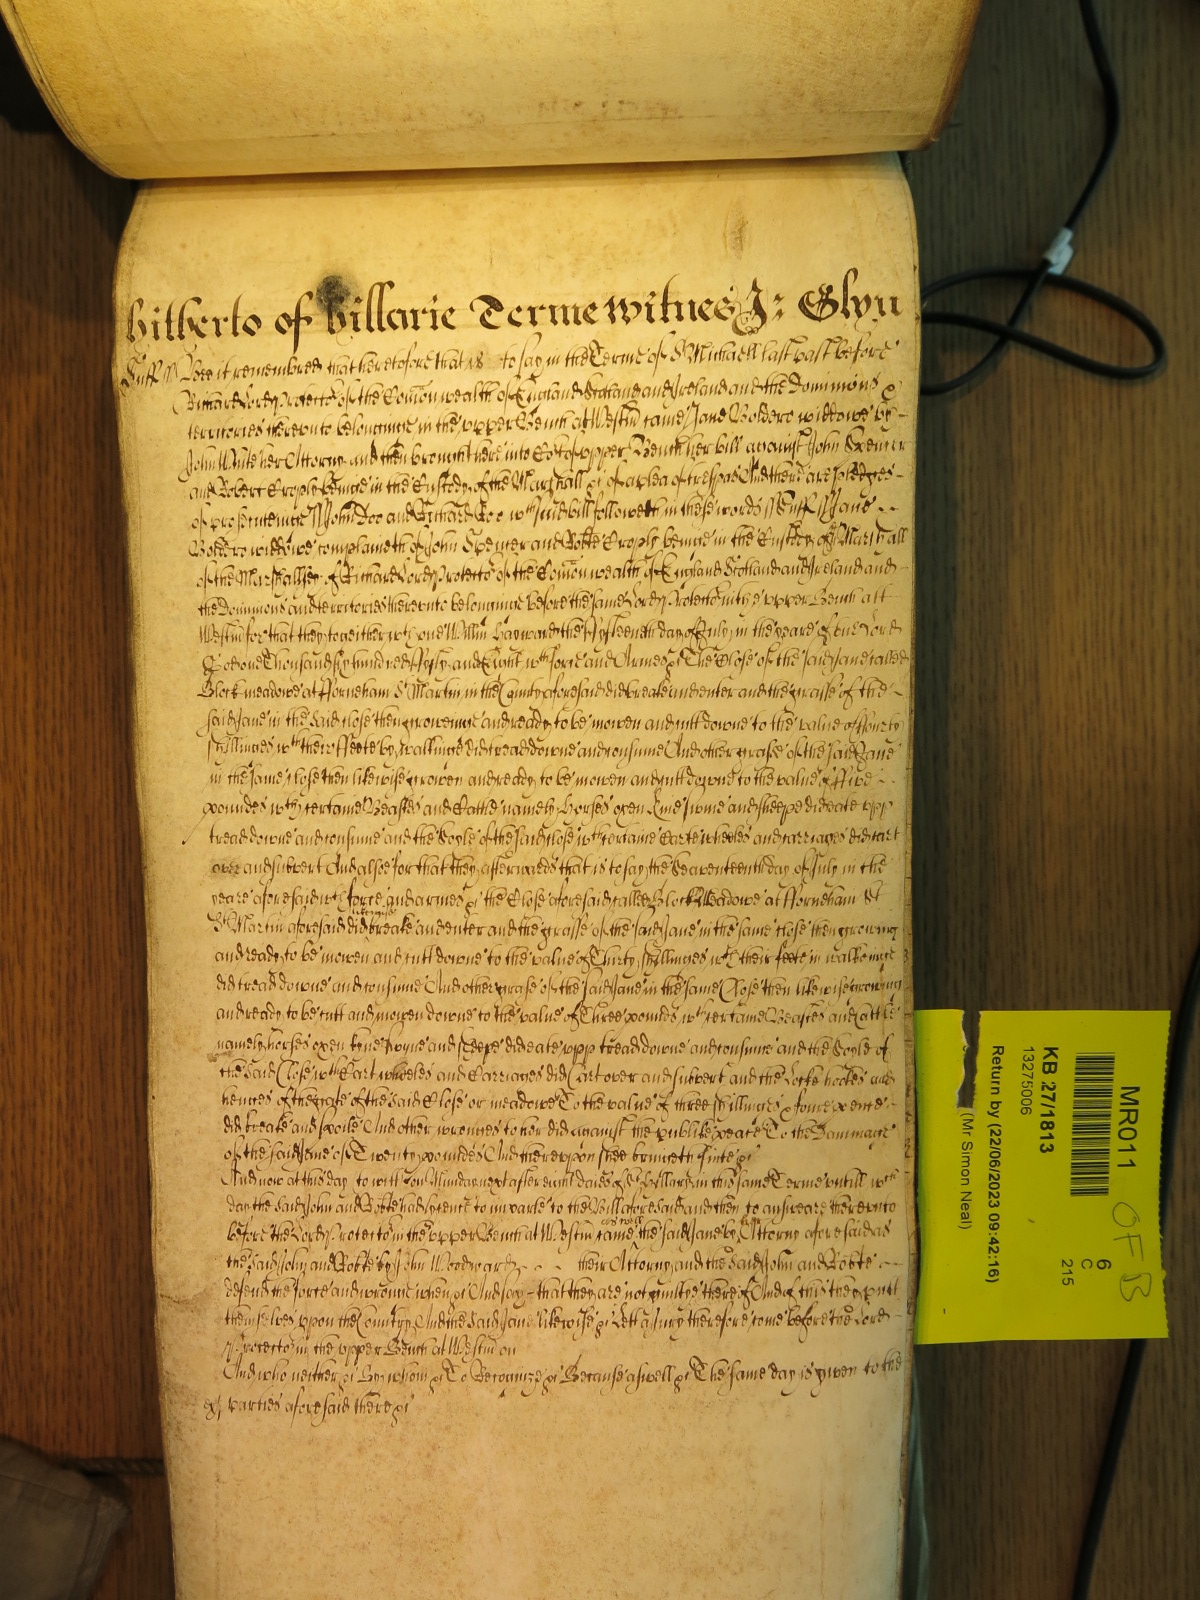 hitherto of hillarie Terme witnes J: Glyn
Suff ss Bee it remembred that heretofore that is to say in the Terme of St Michaell last past before
Richard Lord Protector of the Comonwealth of England Scotland and Ireland and the Dominions &
territories thereunto belonginge in the upper Bench at Westm came Jane Boldero widdowe by
John White her Attorny and then brought here into Cort of upper Bench her bill against John Spencer
and Robert Cropley beinge in the Custody of the Marshall &c of a plea of trespas And there are pledges
of prosecutinge ss John Doo and Richard Roo wch said bill followeth in these words ss Suff ss Jane
Boldero widdowe complaineth of John Spencer and Robte Cropley beinge in the Custody of the Marshall
of the Marshallsey of Richard Lord Protector of the Comonwealth of England Scotland and Ireland and
the Dominions and territories thereunto belonginge before the same Lord Protector in the upper Bench att
Westm for that they together wth one Willm Hayward the fifteenth day of July in the yeare of our Lord
God one Thousand six hundred fifty and Eight wth force and Armes &c The Close of the said Jane called
Block meadowe at fforneham St Martin in the County aforesaid did breake and enter and the grasse of the
said Jane in the said close then growinge and ready to be mowen and cutt downe to the value of fourty
shillinges wth their ffeete by walkinge did tread downe and consume And other grasse of the said Jane
in the same close then likewise growen and ready to be mowen and cutt downe to the value of ffive
poundes wth certaine Beastes and Cattle namely horses oxen kine swine and sheepe did eate upp
tread downe and consume and the Soyle of the said close wth certaine Carte wheeles and carriages did cart
over and subvert And alsoe for that they afterwards that is to say the Seaventeenth day of July in the
yeare aforesaid wth force and armes &c the Close aforesaid called Block Meadowe at fforneham St
St Martin aforesaid did breake and enter and the grasse of the said Jane in the same close then growing
and ready to be mowen and cutt downe to the value of Thirty shillinges wth their feete in walkeinge
did tread downe and consume And other grasse of the said Jane in the same Close then likewise growing
and ready to be cutt and mowen downe to the value of Three poundes wth certaine Beastes and Cattle
namely horses oxen kyne swyne and sheepe did eate upp tread downe and consume and the Soyle of
the said Close wth Cart wheeles and Carriages did Cart over and subvert and the Locke hookes and
hences of the gate of the said Close or meadowe To the value of three shillinges & foure pence
did breake and spoile And other wronges to her did against the publike peace To the Dammage
of the said Jane of Twenty poundes And thereupon shee bringeth suite &c
And now at this day to witt on Munday next after eight daies of St Hillary in this same Terme untill wch
day the said John and Robte had lycence to imparle to the Bill aforesaid and then to answeare thereunto
before the Lord Protector in the upper Bench at Westm came as well the said Jane by her Attorny aforesaid as
the said John and Robte by John Woodward their Attorny and the said John and Robte
defend the force and wronge when &c And say that they are not guilty thereof And of this they putt
themselves upon the Country And the said Jane likewise &c Lett a Jury therefore come before the Lord
Protector in the upper Bench at Westm on
And who neither &c By whom &c To Recognize &c Because aswell &c The same day is given to the
parties aforesaid there &c
MR011
6
C
215
KB 27/1813
13275006
Return by (22/06/2023 09:42:16)
(Mr Simon Neal)
OF B